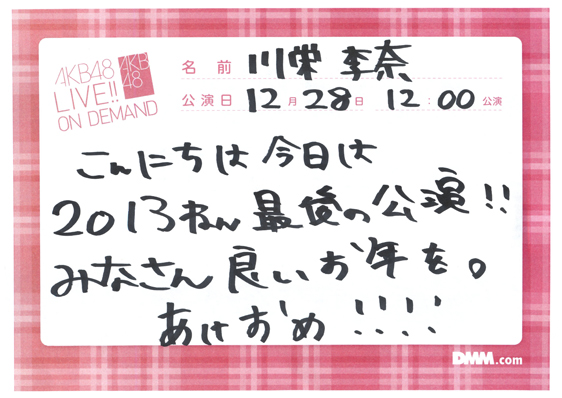 AKB48
LIVE!!
ON DEMAND
AKB
48
名前 川栄 李奈
公演日 12月28日 12:00公演
こんにちは 今日は
2013ねん 最後の公演!!
みなさん 良いお年を。
あけおめ!!!!
DMM.com